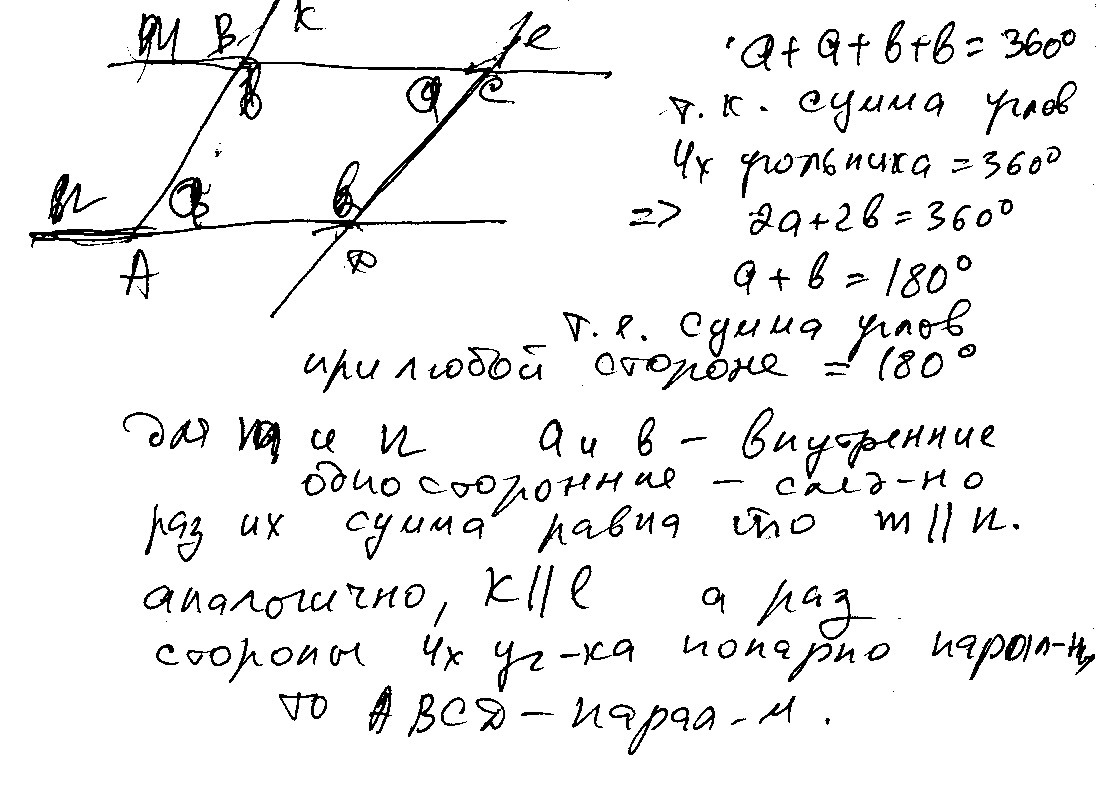 м В к
l
в
а С
n а в
А D
а + а + в + в = 360°
т.к. сумма углов
4х угольника = 360°
=> 2а + 2в = 360°
а + в = 180°
т.е. сумма углов
при любой стороне = 180°
для m и n а и в – внутренние
односторонние – след-но
раз их сумма равна то m || n.
аналогично, K || l а раз
стороны 4х уг-ка попарно парал-ны,
то АВСД – парал-м.